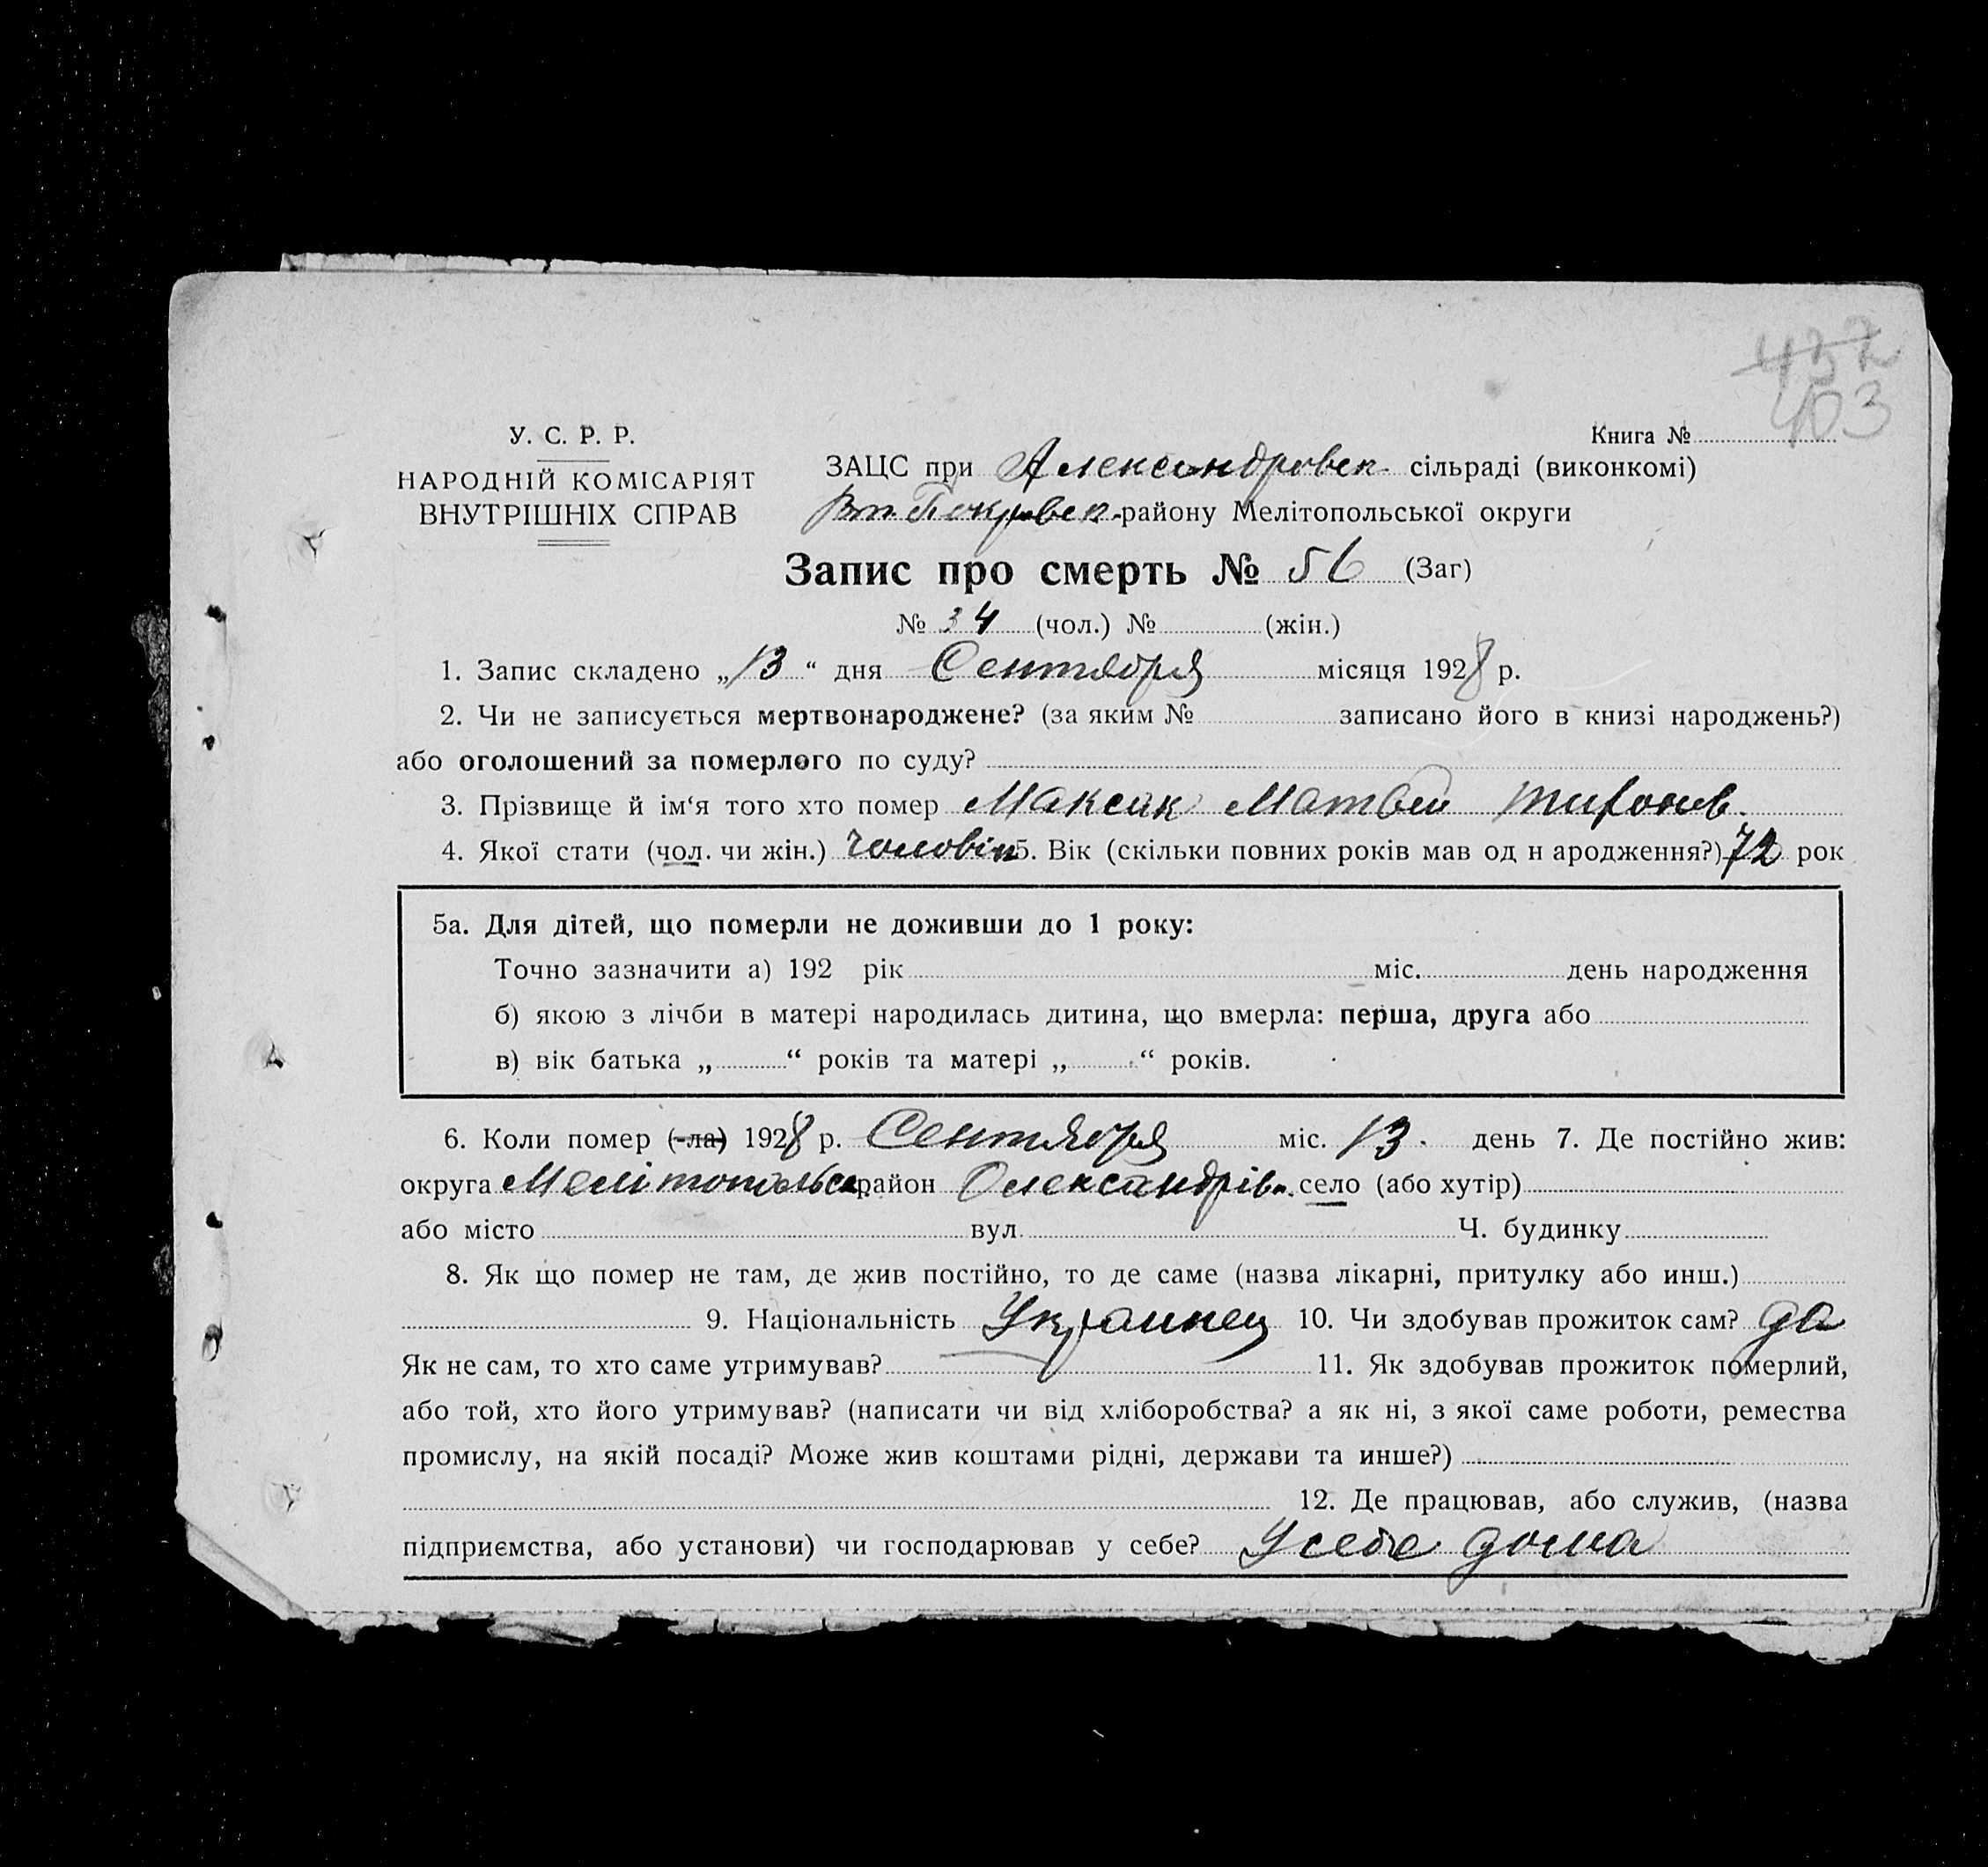 437
403
У. С. Р. Р.
НАРОДНІЙ КОМІСАРІЯТ
ВНУТРІШНІХ СПРАВ
Книга №
ЗАЦС при Александровск. сільраді (виконкомі)
Вт. Покровск. району Мелітопольської округи
Запис про смерть № 56 (Заг)
№ 34 (чол.) № (жін.)
1. Запис складено „13“ дня Сентября місяця 1928 р.
2. Чи не записується мертвонароджене? (за яким № записано його в книзі народжень?)
або оголошений за померлого по суду?
3. Прізвище й ім‘я того хто помер Максак Матвей
4. Якої стати (чол. чи жін.) Чоловік 5. Вік (скільки повних років мав од н ародження?) 72 рок
5а. Для дітей, що померли не доживши до 1 року:
Точно зазначити а) 192 рік міс. день народження
б) якою з лічби в матері народилась дитина, що вмерла: перша, друга або
в) вік батька „ “ років та матері „ “ років.
6. Коли помер (-ла) 1928 р. Сентября міс. 13. день 7. Де постійно жив:
округа Мелітопольськ район Олександрівк. село (або хутір)
або місто вул. Ч. будинку
8. Як що помер не там, де жив постійно, то де саме (назва лікарні, притулку або инш.)
9. Національність Украинец 10. Чи здобував прожиток сам? да
Як не сам, то хто саме утримував? 11. Як здобував прожиток померлий,
або той, хто його утримував? (написати чи від хліборобства? а як ні, з якої саме роботи, ремества
промислу, на якій посаді? Може жив коштами рідні, держави та инше?)
12. Де працював, або служив, (назва
підприємства, або установи) чи господарював у себе? У себе дома